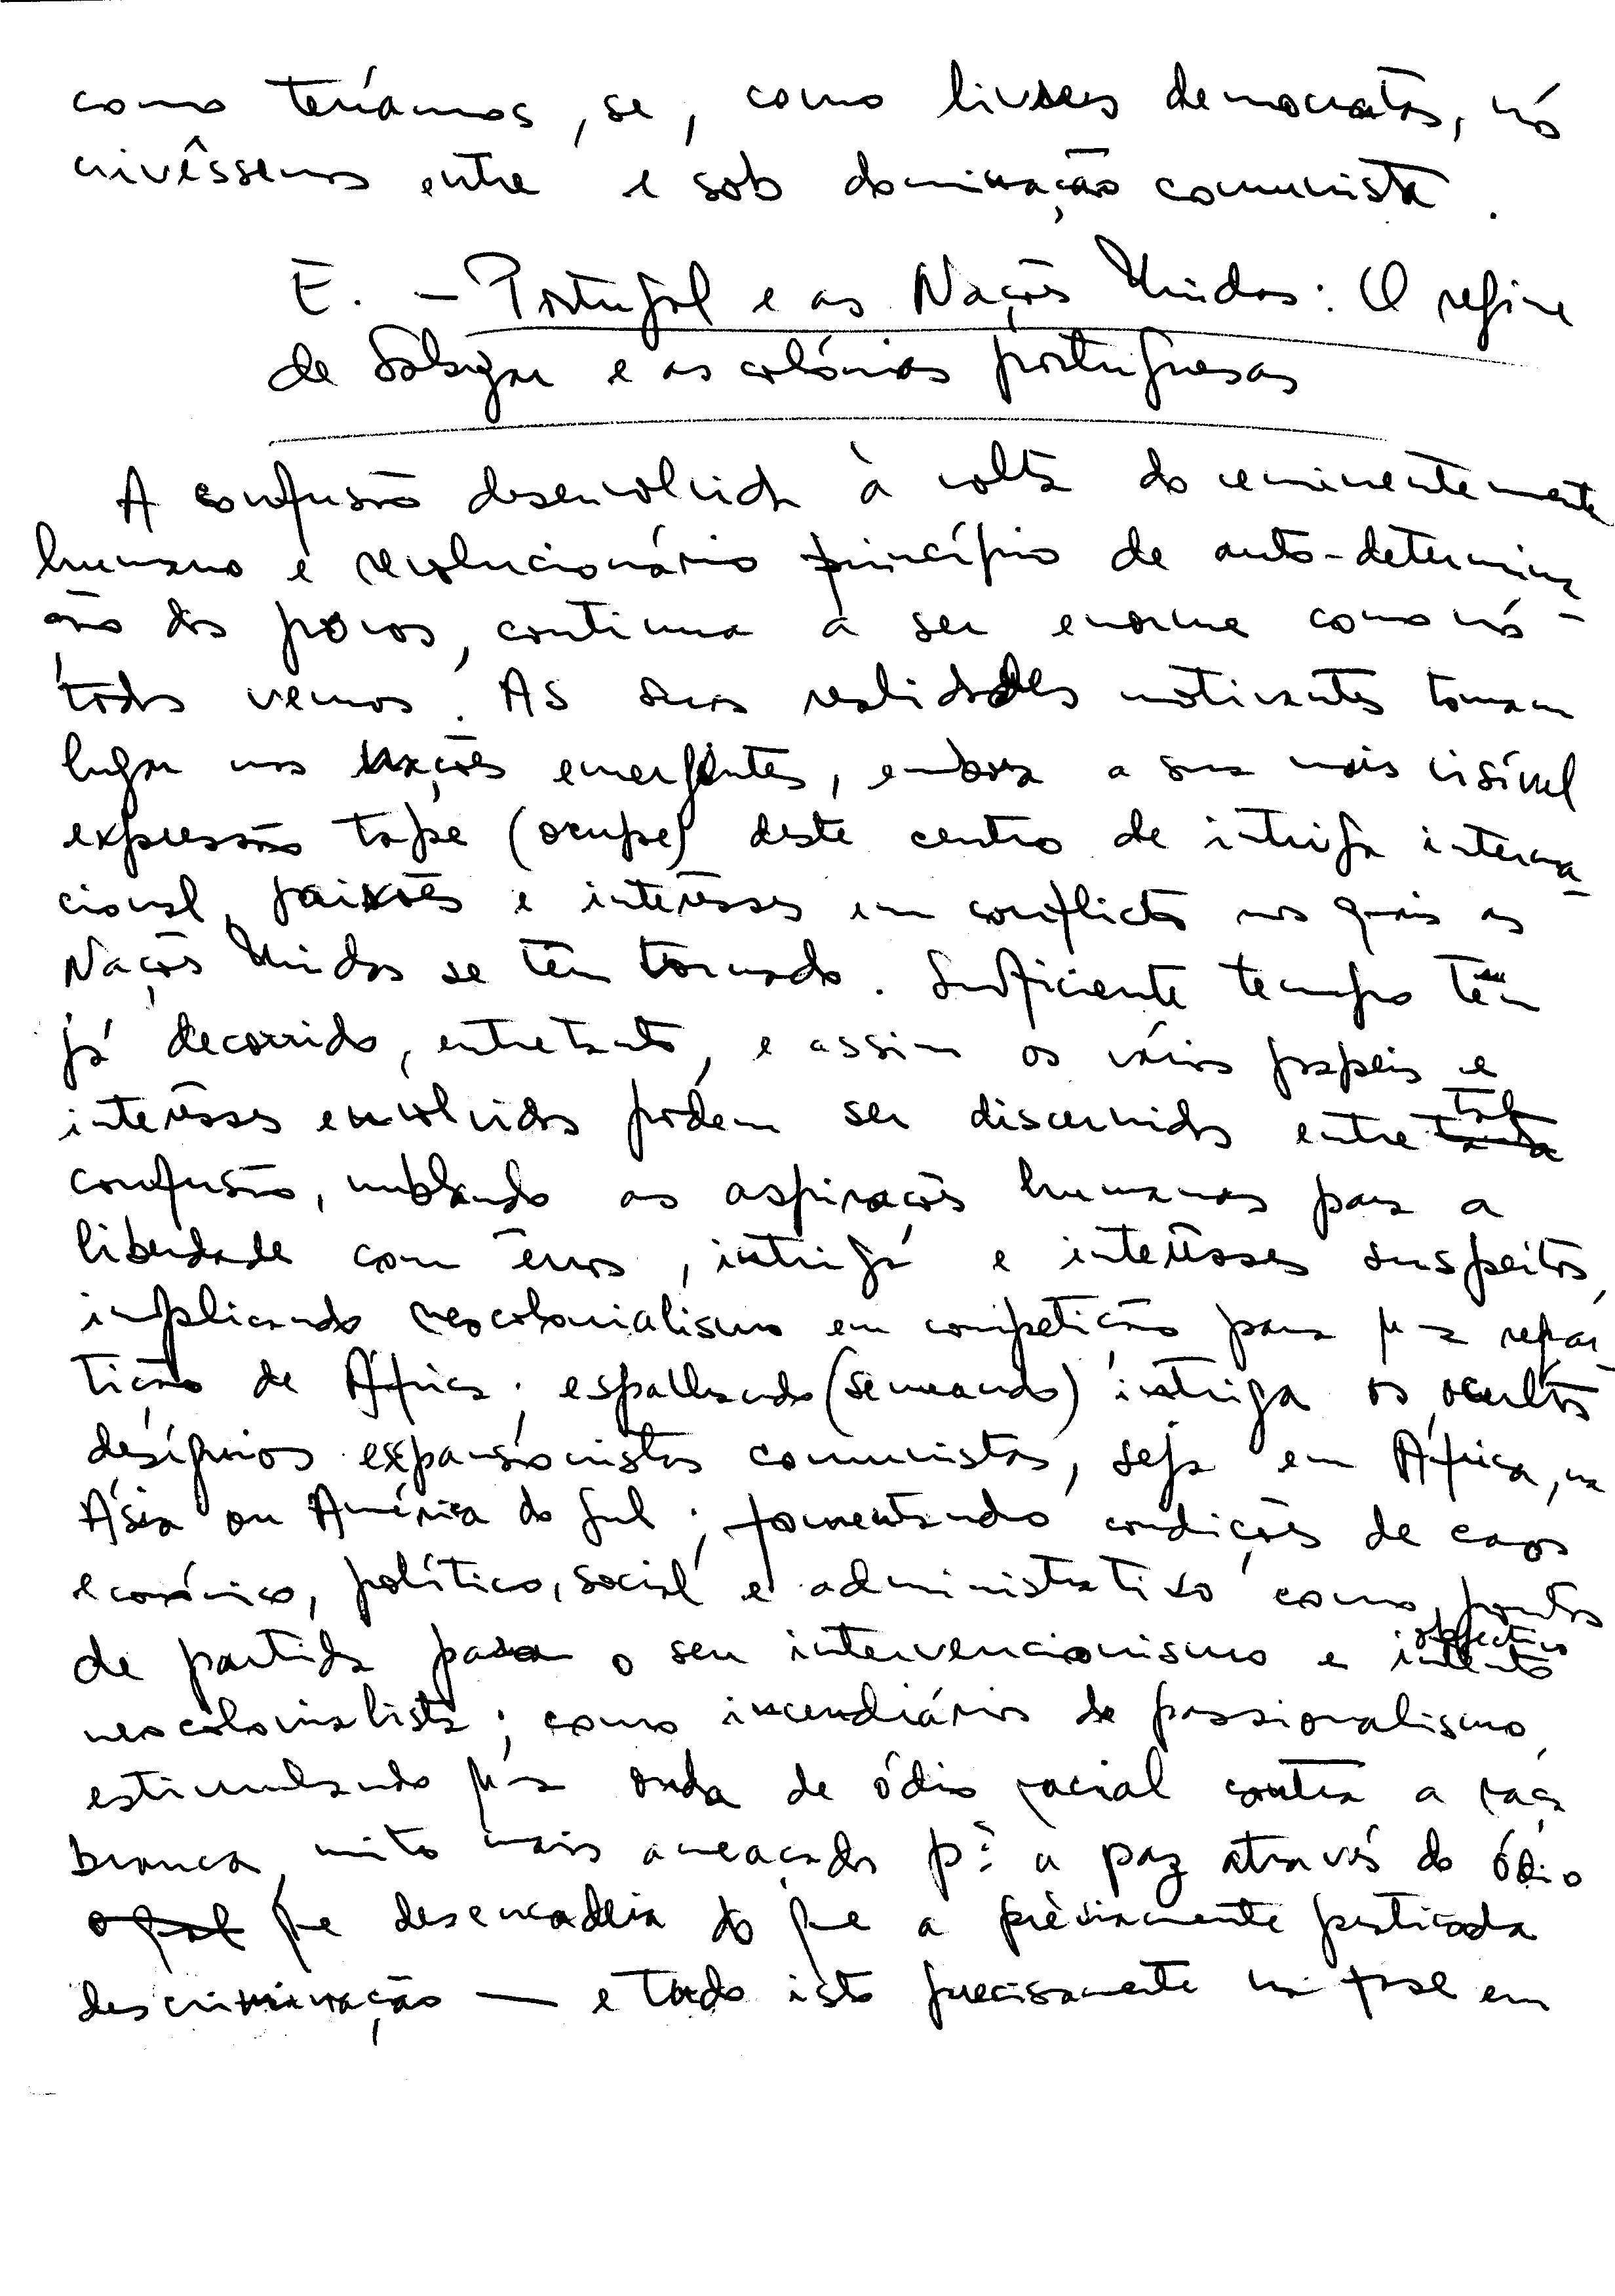 como teríamos, se, como livres democratas, nós
vivêssemos entre e sob dominação comunista.
E. - Portugal e as Nações Unidas: O regime
de Salazar e as colónias portuguesas
A confusão desenvolvida à volta do eminentemente
humano e revolucionário princípio de auto-determina-
ção dos povos, continua a ser enorme como nós
todos vemos. As suas realidades motivantes tomam
lugar nas nações emergentes, embora a sua mais visível
expressão tape (ocupe) deste centro de intriga interna-
cional, paixões e interêsses em conflicto nos quais as
Nações Unidas se têm tornado. Suficiente tempo têm
já decorrido, entretanto, e assim os vários papeis e
interêsses envolvidos pódem ser discernidos entre tal
confusão, nublando as aspirações humanas para a
liberdade com êrros, intriga e interêsses suspeitos,
implicando neocolonialismo em competição para uma repar-
tição de África; espalhando (semeando) intriga os ocultos
desígnios expansionistas comunistas, seja em África, na
Ásia ou América do Sul; fomentando condições de caos
económico, político, social e administrativo como pontos
de partida para o seu intervencionismo e intento objectivo
neocolonialista; como incendiários de passionalismo
estimulando uma onda de ódio racial contra a raça
branca, muito mais ameaçada pª a paz através do ódio
que desencadeia do que a prèviamente praticada
descriminação — e tudo isto precisamente na fase em